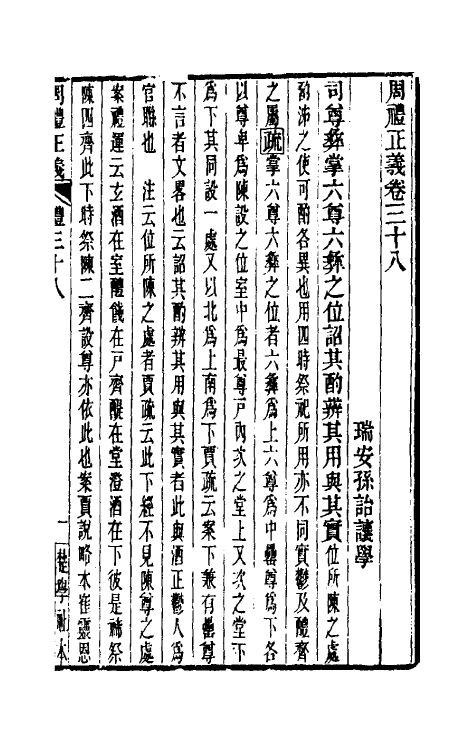 周禮正義卷三十八
瑞安孫詒讓學
司尊彝掌六尊六彝之位詔其酌辨其用與其實位所陳之處
酌泲之使可酌各異也用四時祭祀所用亦不同實鬱及醴齊
之屬疏掌六尊六彝之位者六彝爲上六尊爲中罍尊爲下各
以尊卑爲陳設之位室中爲最尊戸內次之堂上又次之堂下
爲下其同設一處又以北爲上南爲下賈疏云案下兼有罍尊
不言者文畧也云詔其酌辨其用與其實者此與酒正鬱人爲
官聯也 注云位所陳之處者賈疏云此下經不見陳尊之處
案禮運云玄酒在室醴醆在戸齊醍在堂澄酒在下彼是禘祭
陳四齊此下時祭陳二齊設尊亦依此也案賈說略本崔靈恩
周禮正義 禮三十八 一 楚學社本